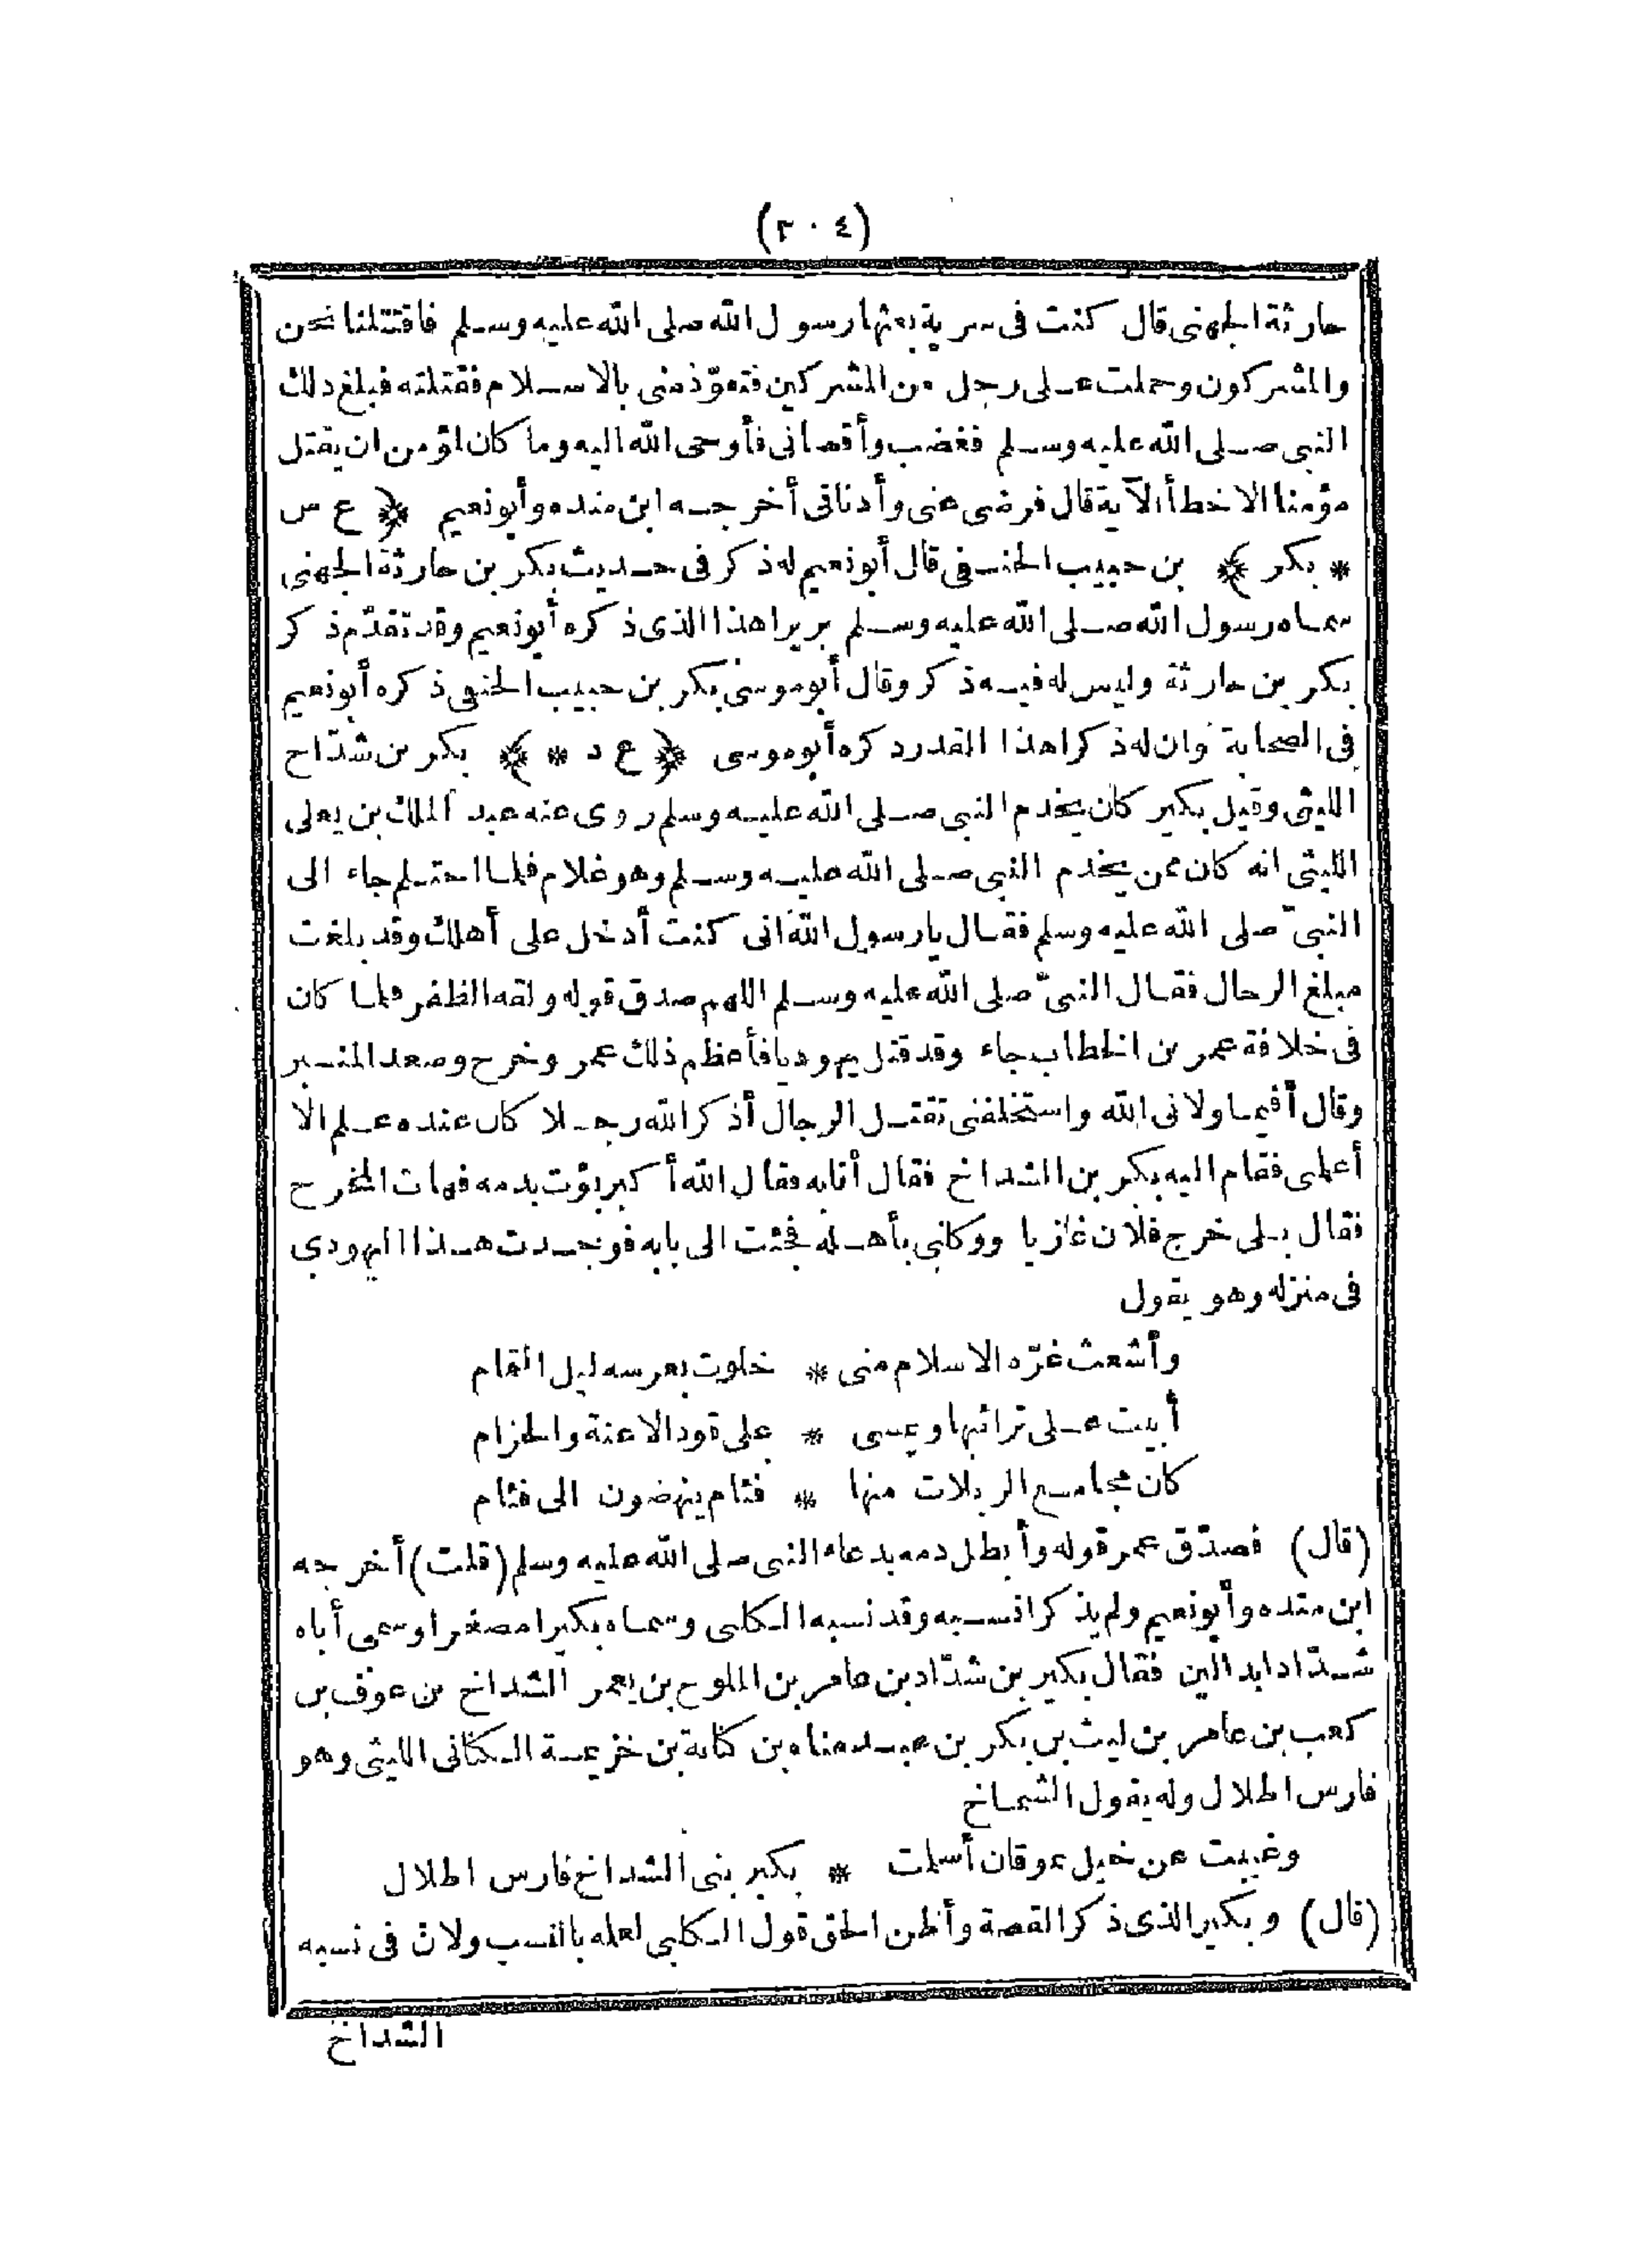 (٢٠٤)
حارثة الجهنى قال كنت فى سرية بعثها رسول الله صلى الله عليه وسلم فاقتتلنا نحن
والمشركون وحملت على رجل من المشركين فتعوّذ منى بالاسلام فقتلته فبلغ ذلك
النبى صلى الله عليه وسلم فغضب وأقصانى فأوحى الله اليه وما كان لمؤمن ان يقتل
مؤمنا الا خطأ الآية قال فرضى عنى وأدنانى أخرجه ابن منده وأبو نعيم ﴿ ع س
* بكر ﴾ بن حبيب الحنفى قال أبو نعيم له ذكر فى حديث بكر بن حارثة الجهنى
سماه رسول الله صلى الله عليه وسلم بريرا هذا الذى ذكره أبو نعيم وقد تقدّم ذكر
بكر بن حارثة وليس له فيه ذكر وقال أبو موسى بكر بن حبيب الحنفى ذكره أبو نعيم
فى الصحابة وان له ذكرا هذا القدر ذكره أبو موسى ﴿ ع د * ﴾ بكر بن شدّاخ
الليثى وقيل بكير كان يخدم النبى صلى الله عليه وسلم روى عنه عبد الملك بن يعلى
الليثى انه كان ممن يخدم النبى صلى الله عليه وسلم وهو غلام فلما احتلم جاء الى
النبىّ صلى الله عليه وسلم فقال يا رسول الله انى كنت أدخل على أهلك وقد بلغت
مبلغ الرجال فقال النبىّ صلى الله عليه وسلم اللهم صدق قوله ولقه الظفر فلما كان
فى خلافة عمر بن الخطاب جاء وقد قتل يهوديا فأعظم ذلك عمر وخرج وصعد المنبر
وقال أفيما ولانى الله واستخلفنى تقتل الرجال أذكر الله رجلا كان عنده علم الا
أعلمى فقام اليه بكر بن الشداخ فقال أنا به فقال الله أكبر بؤت بدمه فهات المخرج
فقال بلى خرج فلان غازيا ووكلنى بأهله فجئت الى بابه فوجدت هذا اليهودى
فى منزله وهو يقول
وأشعث غرّه الاسلام منى * خلوت بعرسه ليل التمام
أبيت على ترائبها ويمسى * على قود الاعنة والحزام
كان مجامع الربلات منها * فئام ينهضون الى فئام
(قال) فصدّق عمر قوله وأبطل دمه بدعاء النبى صلى الله عليه وسلم (قلت) أخرجه
ابن منده وأبو نعيم ولم يذكرا نسبه وقد نسبه الكلبى وسماه بكيرا مصغرا وسمى أباه
شدّادا بدالين فقال بكير بن شدّاد بن عامر بن الملوح بن يعمر الشداخ بن عوف بن
كعب بن عامر بن ليث بن بكر بن عبد مناه بن كنانة بن خزيمة الكنانى الليثى وهو
فارس اطلال وله يقول الشماخ
وغيبت عن خيل بموقان أسلمت * بكير بنى الشداخ فارس اطلال
(قال) وبكير الذى ذكر القصة وأظن الحق قول الكلبى لعلمه بالنسب ولان فى نسبه
الشداخ